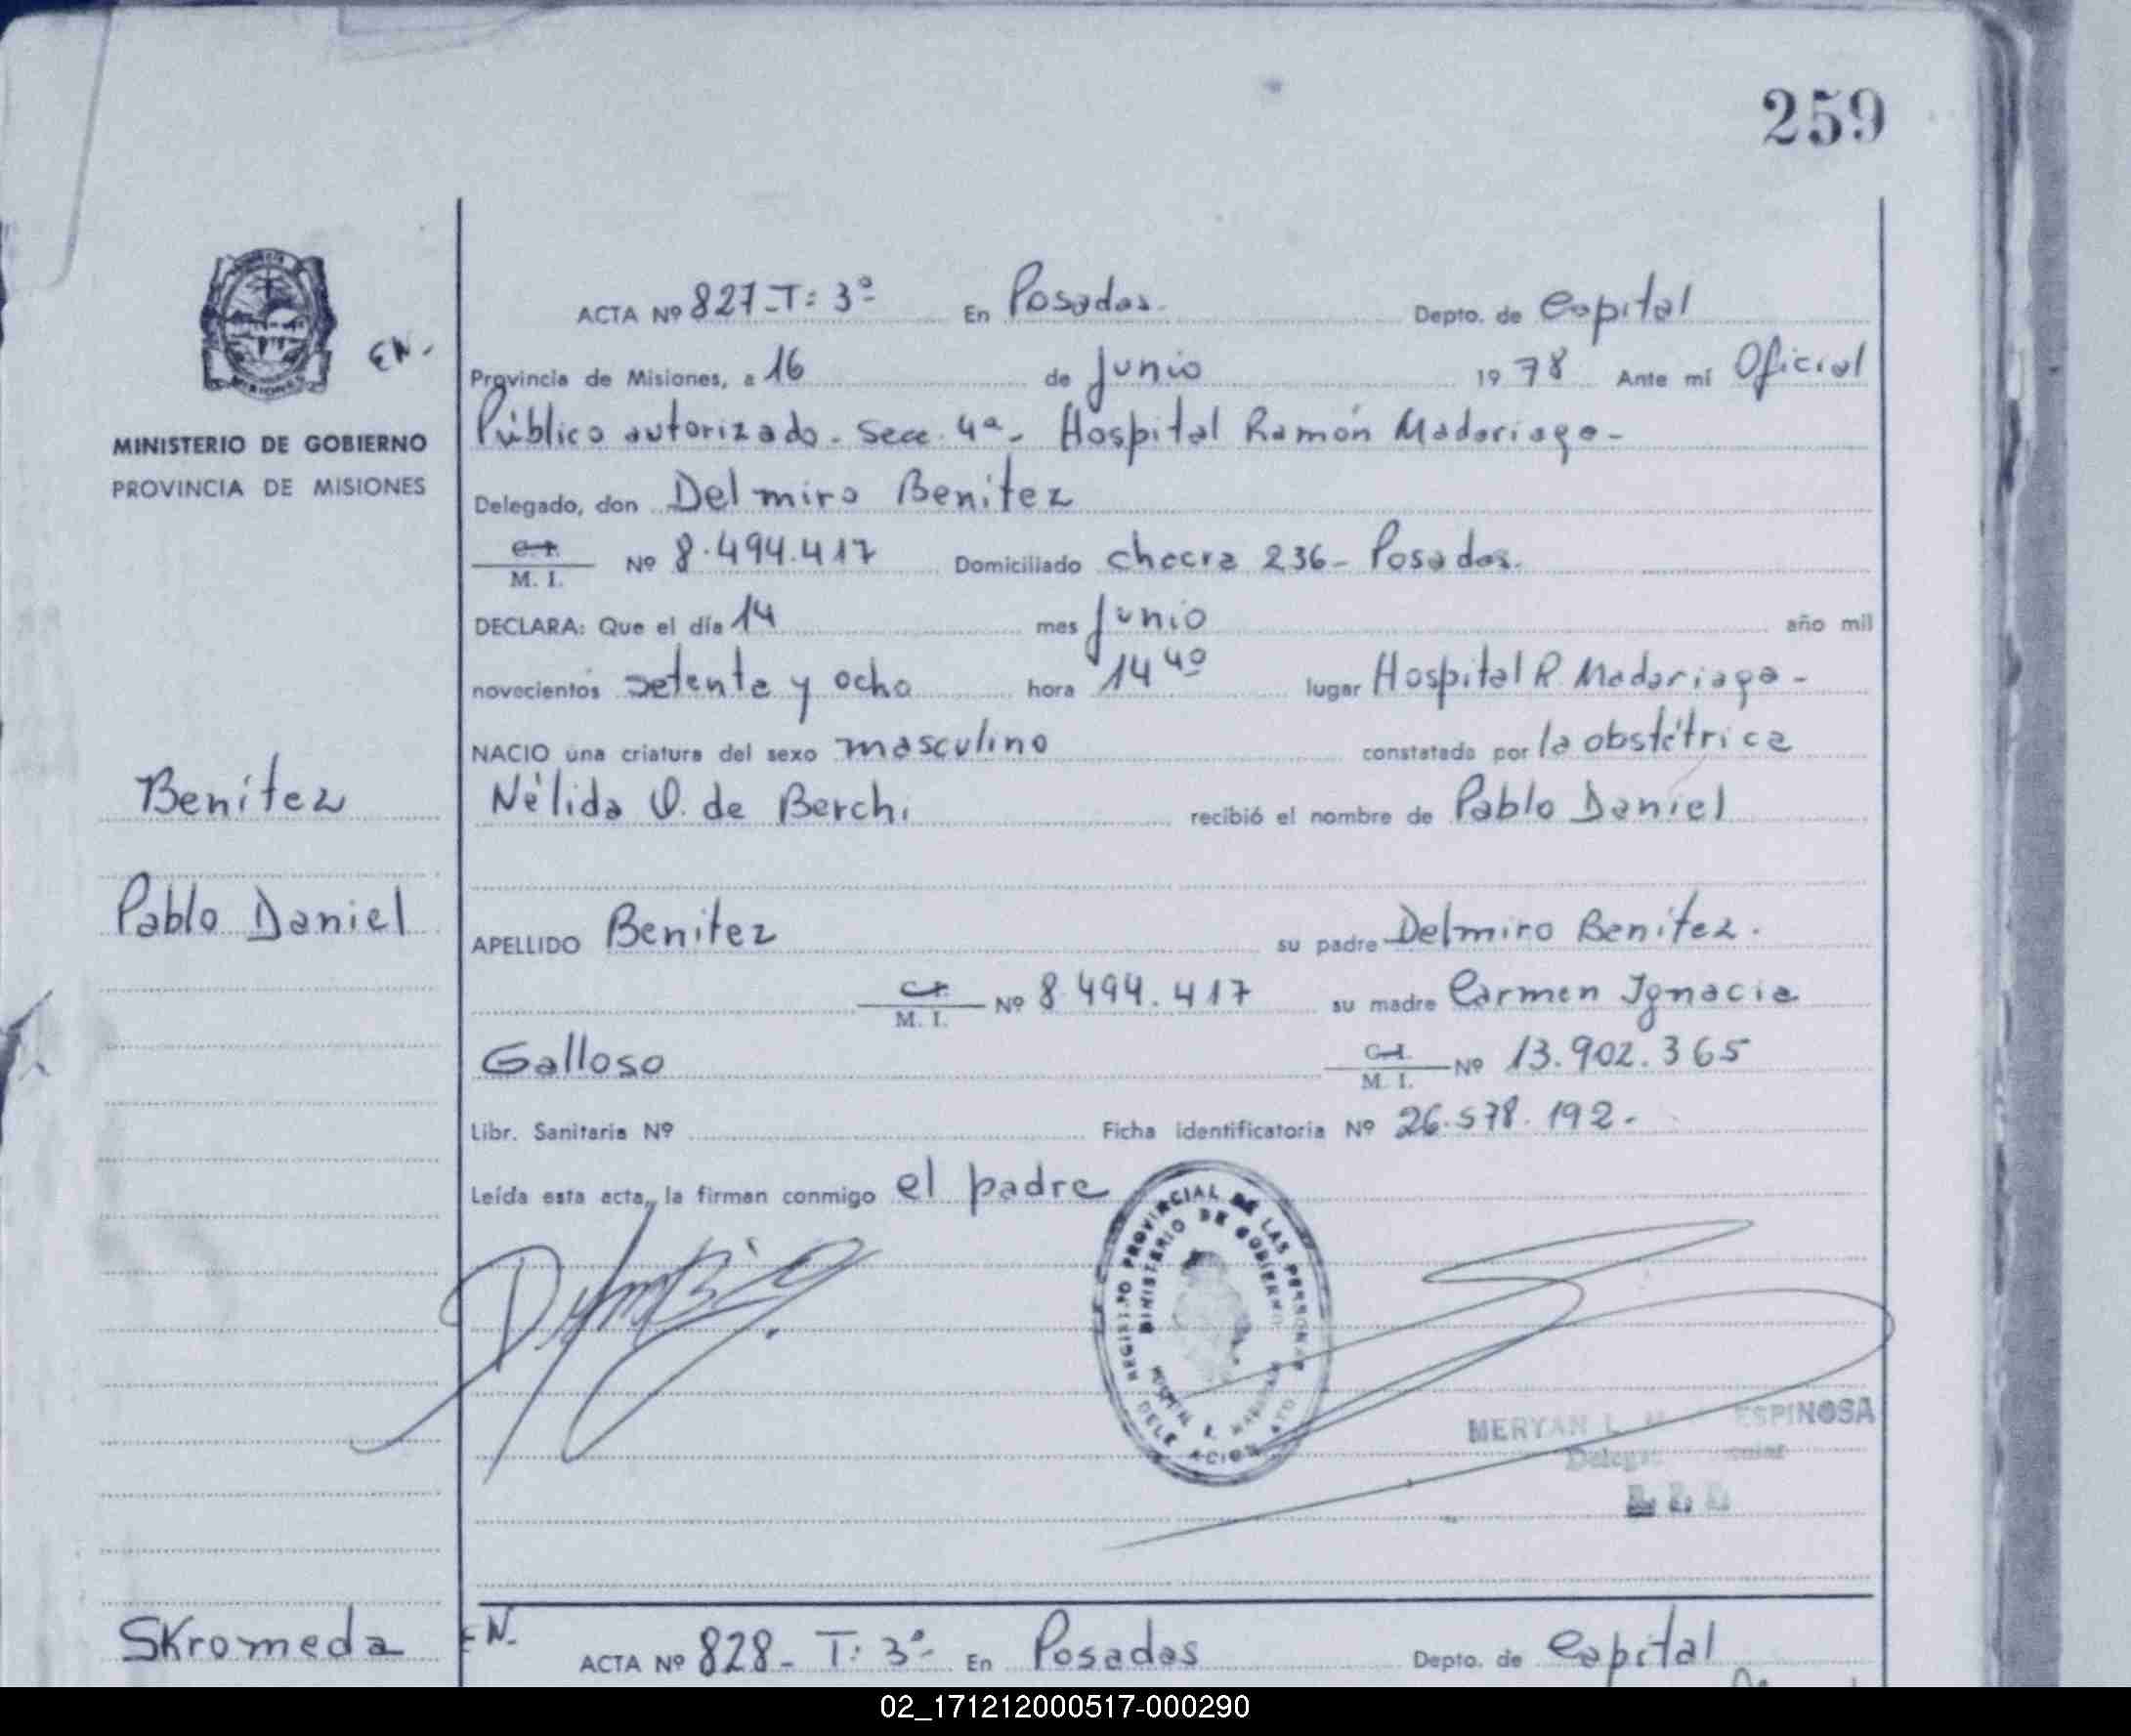 259
MINISTERIO DE GOBIERNO
PROVINCIA DE MISIONES
EN.
Benítez
Pablo Daniel
ACTA Nº 827-T: 3º- En Posadas. Depto. de Capital
Provincia de Misiones, a 16 de Junio 1978 Ante mí Oficial
Público autorizado. Secc. 4ª- Hospital Ramón Madariaga-
Delegado, don Delmiro Benítez
C. I. M. I. Nº 8.494.417 Domiciliado chacra 236- Posadas.
DECLARA: Que el día 14 mes Junio año mil
novecientos setenta y ocho hora 14 40 lugar Hospital R. Madariaga-
NACIO una criatura del sexo masculino constatado por la obstétrica
Nélida O. de Berchi recibió el nombre de Pablo Daniel
APELLIDO Benitez su padre Delmiro Benítez.
C. I. M. I. Nº 8.494.417 su madre Carmen Ignacia
Galloso C. I. M. I. Nº 13.902.365
Libr. Sanitaria Nº Ficha identificatoria Nº 26.578.192-
Leída esta acta, la firman conmigo el padre
REGISTRO PROVINCIAL DE LAS PERSONAS
MINISTERIO DE GOBIERNO
MERYAN L. ESPINOSA
Skromeda
EN.
ACTA Nº 828- T: 3º- En Posadas Depto. de Capital
02_171212000517-000290